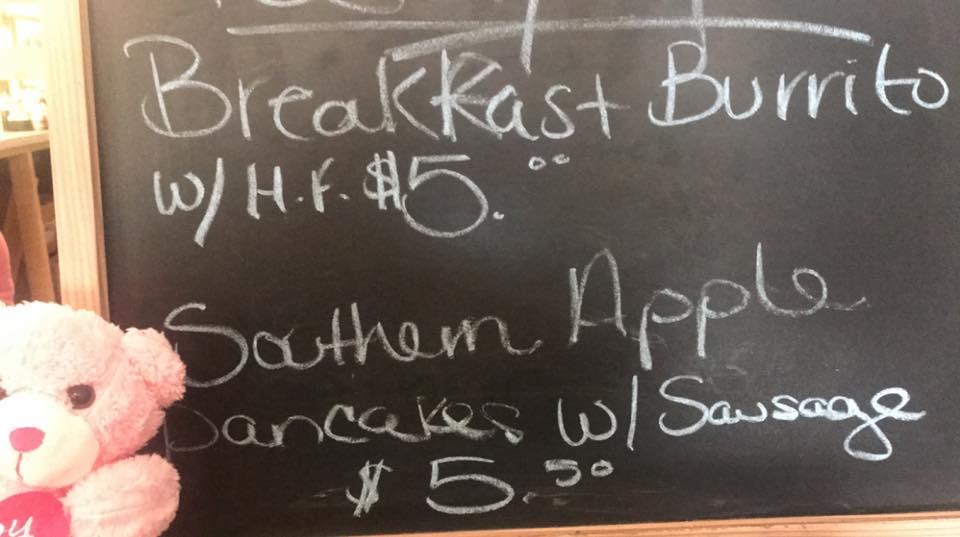 Breakkast Burrito
w/ H.F. $5.00
Southern Apple
pancakes w/ Sausage
$5.50